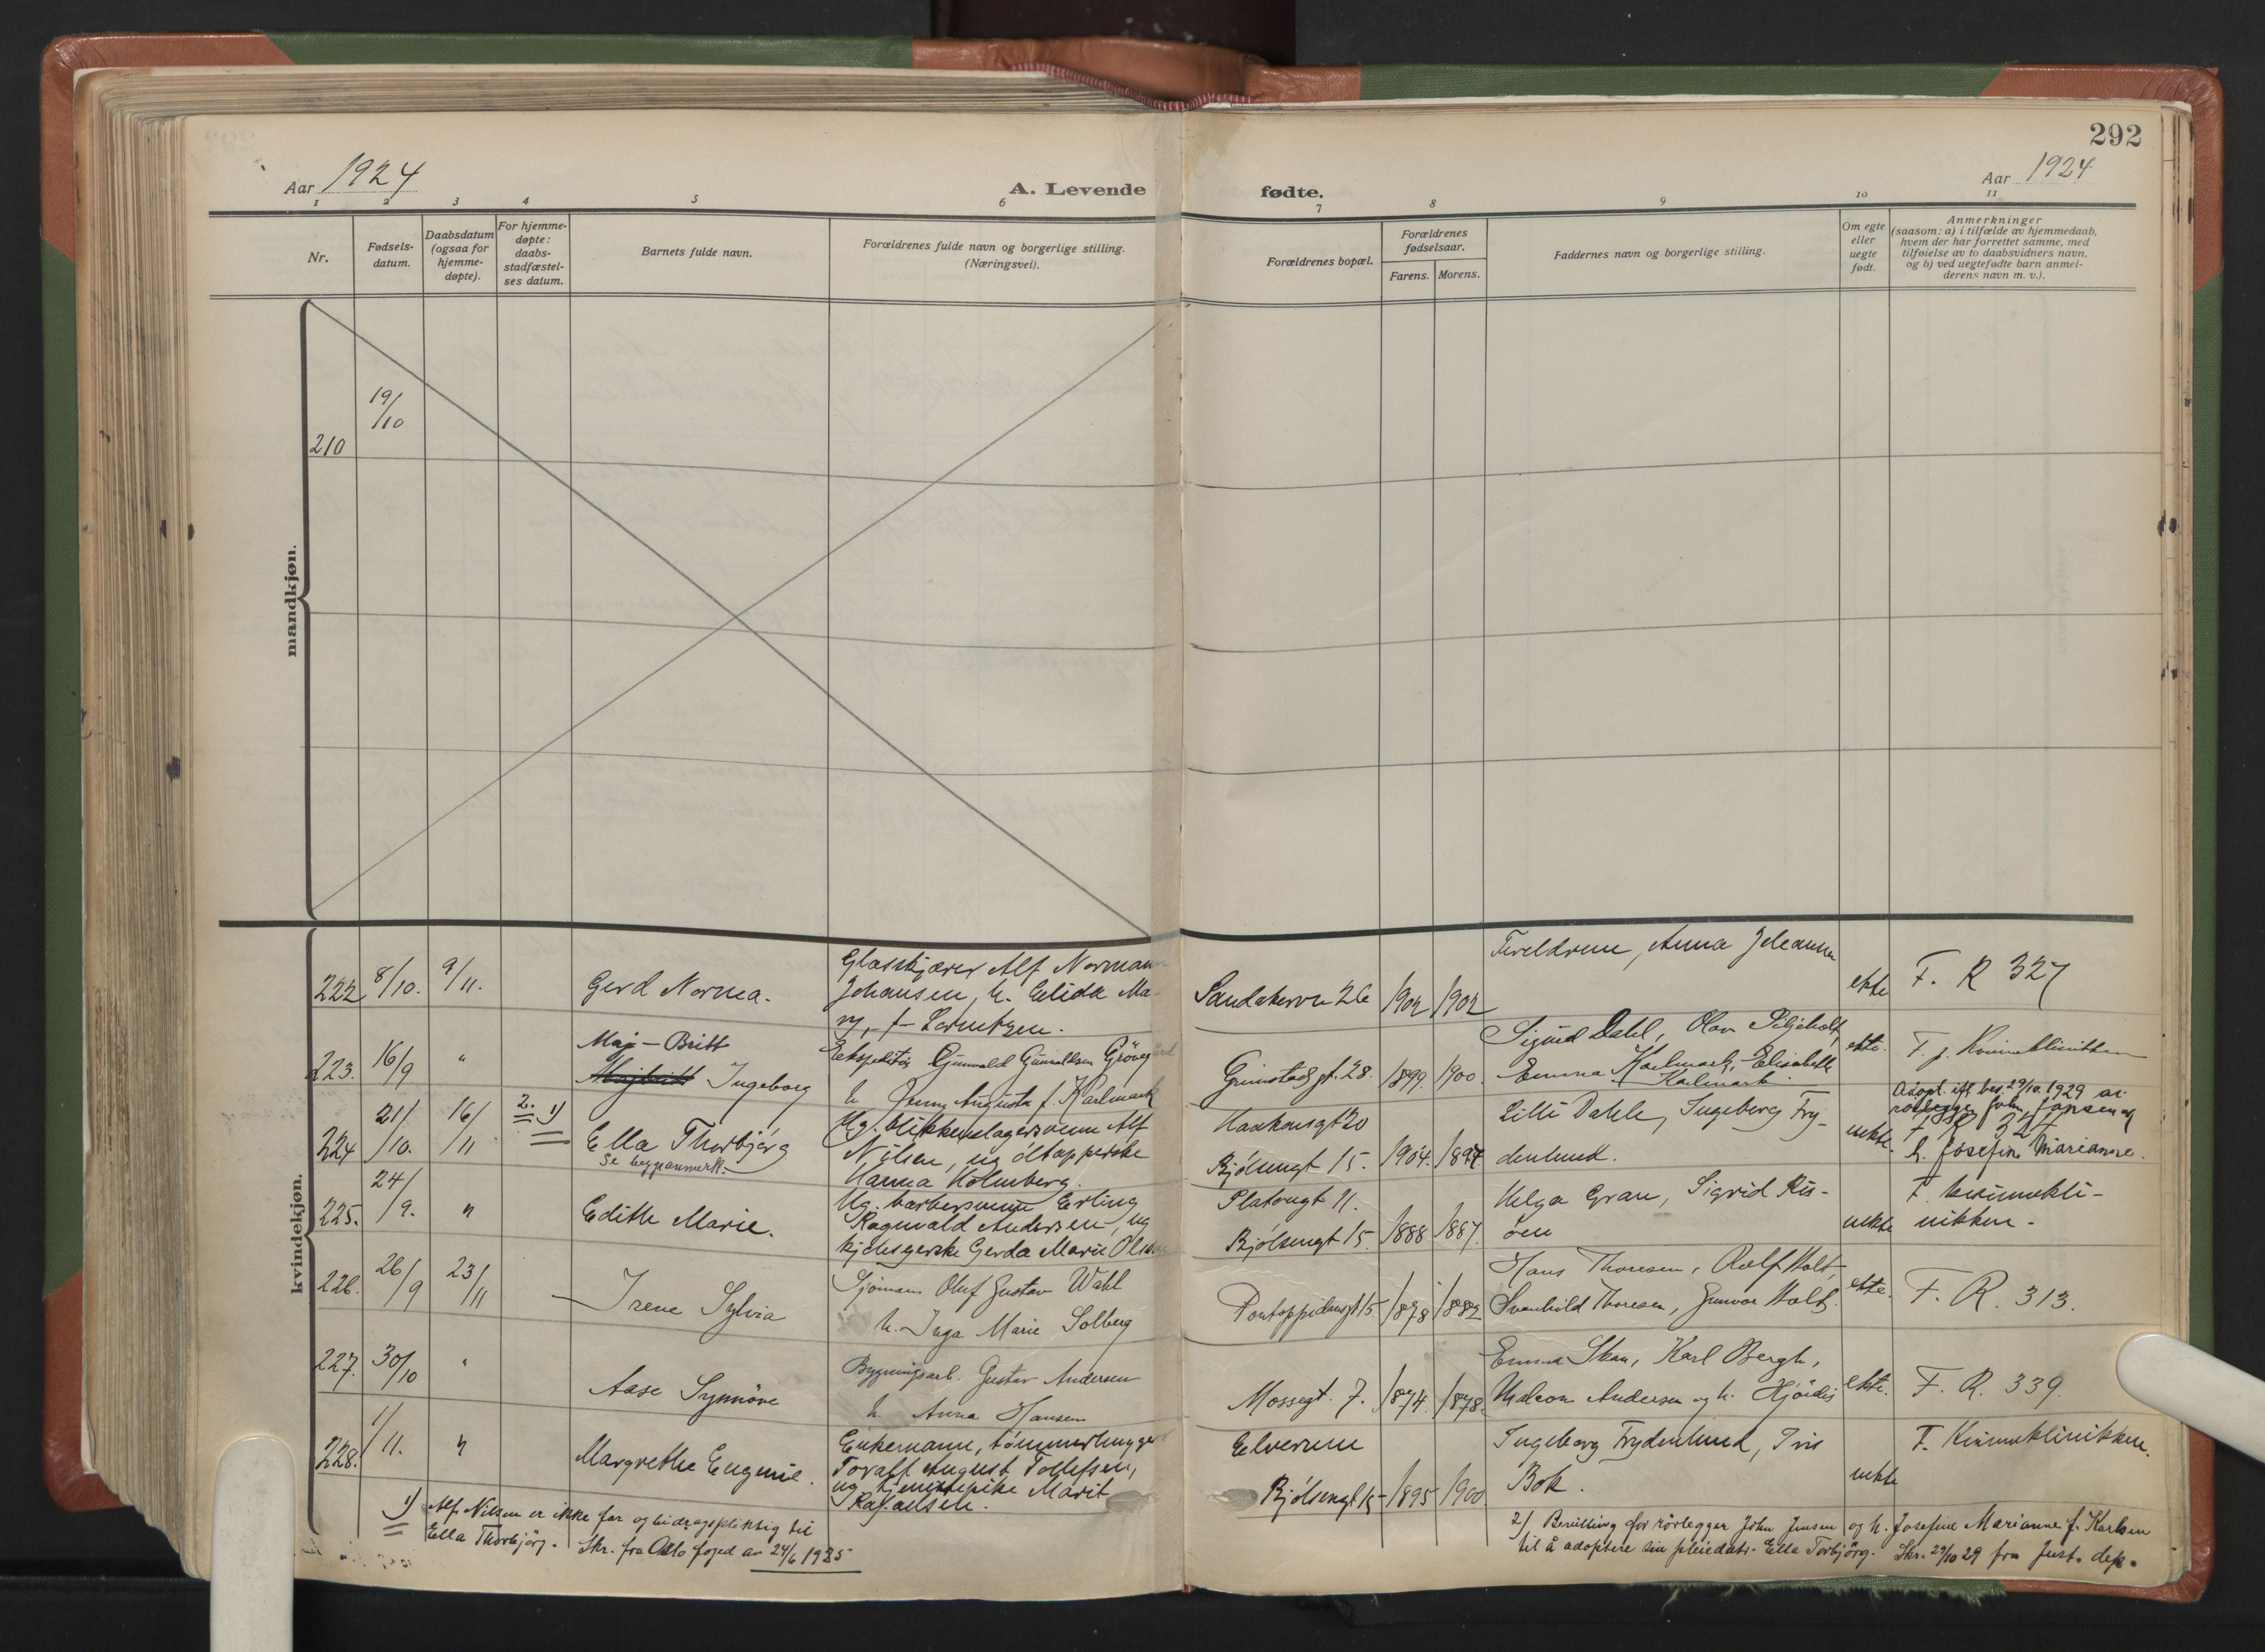 292
Aar 1924
A. Levende
fødte.
Aar 1924
1 2 3 4 5 6 7 8 9 10 11
Nr.
Fødsels-
datum.
Daabsdatum
(ogsaa for
hjemme-
døpte).
For hjemme-
døpte:
daabs-
stadfæstel-
ses datum.
Barnets fulde navn.
Forældrenes fulde navn og borgerlige stilling.
(Næringsvei).
Forældrenes bopæl.
Forældrenes
fødselsaar.
Farens. Morens.
Faddernes navn og borgerlige stilling.
Om egte
eller
uegte
født.
Anmerkninger
(saasom: a) i tilfælde av hjemmedaab,
hvem der har forrettet samme, med
tilføielse av to daabsvidners navn,
og b) ved uegtefødte barn anmel-
derens navn m. v.).
mandkjøn.
210
19/10
kvindekjøn.
222 8/10. 9/11.
Gerd Norma.
Glasskjærer Alf Normann
Johansen, h. Elida Ma-
ry, f. Lorentzen.
Sandakervn 26 1902 1902
Foreldrene, Anna Johanna
ekte
F. R 327
223. 16/9 "
Maj-Britt
Majbritt Ingeborg
Ekspeditør Gunvald Gunvaldsen Gröveg
h Jenny Augusta f. Karlmark
Grimstadgt. 28. 1899. 1900.
Sigurd Dahl, Olav Siljeholt,
Emma Karlmark, Elisabeth
Karlmark
ekte.
F. p. Kvinneklinikken
224 21/10. 16/11 2. 1)
Ella Thorbjörg
Se byggeanmerk.
Ug. blikkenslagersvenn Alf
Nilsen, ug öltapperske
Hanna Holmberg.
Haakonsgt 20
Bjölsengt 15. 1904. 1897
Lilli Dahle, Ingeborg Fry-
denlund.
uekte.
Adopt. ifl bev. 29/10. 1929 av
rørlegger John Jansen og
F. R 324
h. Josefine Marianne.
225. 24/9. "
Edith Marie.
Ug. barbersvenn Erling
Ragnvald Andersen, ug
Gerda Marie Olsen
Platougt 11.
Bjölsengt 15. 1888 1887.
Helga Gran, Sigrid Ris-
öen
uekte
F. kvinnekli-
nikken -
226. 26/9 23/11
Irene Sylvia
Sjömann Oluf Gustav Wahl
h. Inga Marie Solberg
Pontoppidansgt 15. 1878 1882
Hans Thoresen, Rolf Holt,
Svanhild Thoresen, Gunvor Holt.
ekte.
F. R. 313.
227. 30/10 "
Aase Synnöve
Bygningsarb. Gustav Andersen
h. Anna Hansen
Mossegt. 7. 1874. 1878.
Emma Skau, Karl Bergh,
Haakon Andersen og h. Hjördis
ekte.
F. R. 339.
228. 1/11. "
Margrethe Eugenie.
Enkemann, tömmerhugger
Toralf August Tollefsen,
ug tjenestepike Marit
Rafaelsen.
Elverum
Bjölsengt 15 1895 1900
Ingeborg Frydenlund, Iris
Bok.
uekte
F. Kvinneklinikken.
1) Alf Nilsen er ikke far og bidragspliktig til
Ella Thorbjörg. Skr. fra Oslo foged av 24/6 1925
2) Bevilling for rörlegger John Jensen og h. Josefine Marianne f. Karlsen
til å adoptere sin pleiedatr. Ella Torbjörg. Skr. 29/10 29 fra Just. dep.